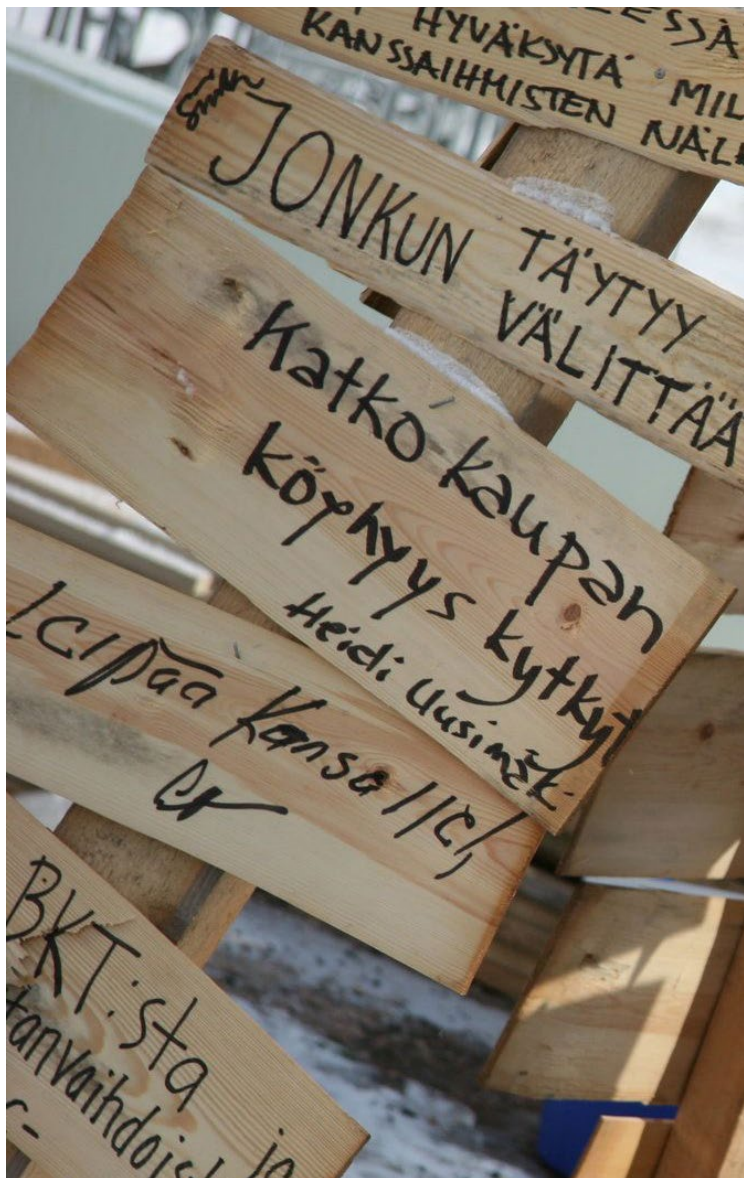 HYVÄKSYTÄ MIL
KANSSAIHMISTEN NÄL
JONKUN TÄYTYY
VÄLITTÄÄ
Katko kaupan
köyhyys kytkyt
Heidi Uusimäk
Leipää Kansalle!
BKT:sta jo
tanvaihdoist